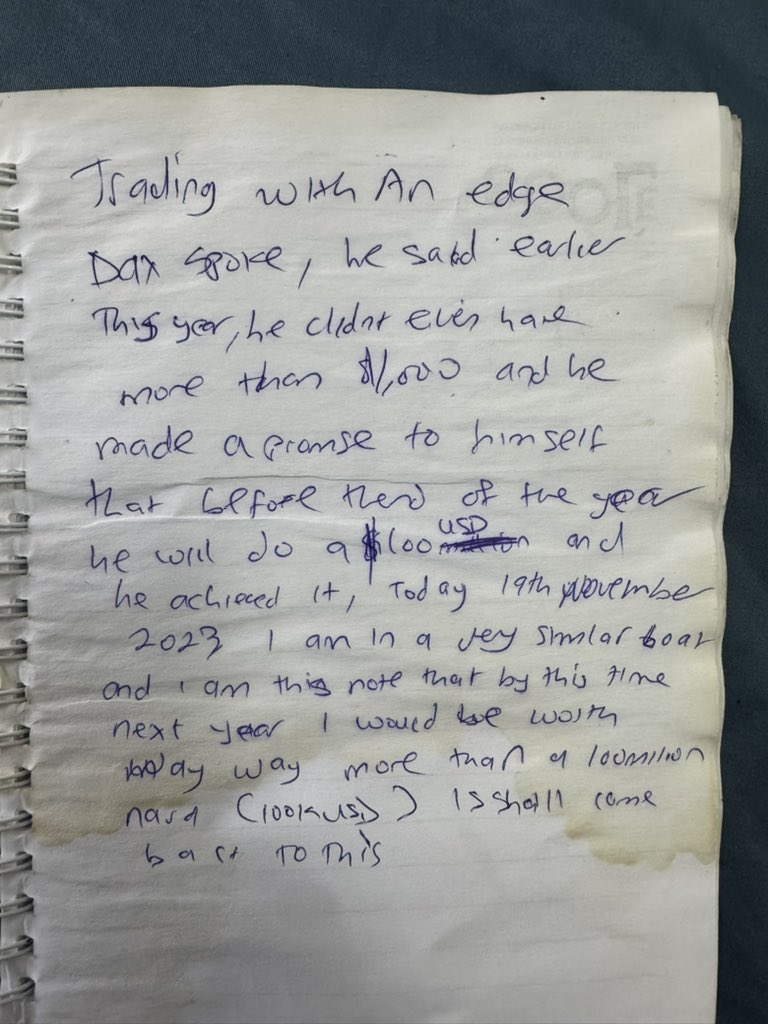 Trading with An edge
Dax spoke, he said earlier
This year, he didnt even have
more than $1,000 and he
made a promse to himself
that before the end of the year
he will do a $100 USD and
he achieved it, Today 19th November
2023 I am in a very similar boat
and i am this note that by this time
next year I would be worth
way way more than a 100million
nara (100k USD) I shall come
back To This